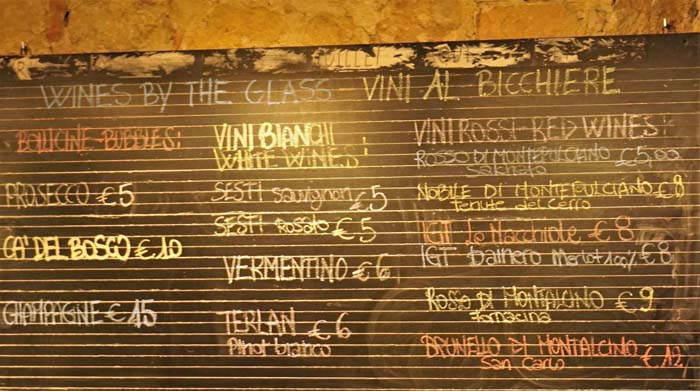 WINES BY THE GLASS - VINI AL BICCHIERE
BOLLICINE-BUBBLES:
PROSECCO €5
CA' DEL BOSCO €.10
CHAMPAGNE €15
VINI BIANCHI
WHITE WINES:
SESTI Sauvignon €5
SESTI Rosato €5
VERMENTINO €6
TERLAN €6
Pinot bianco
VINI ROSSI-RED WINES:
ROSSO DI MONTEPULCIANO €5,00
Salcheto
NOBILE DI MONTEPULCIANO €8
Tenute del Cerro
IGT Le Macchiole €8
IGT Dainero Merlot 100% €8
ROSSO DI MONTALCINO €9
Fornacina
BRUNELLO DI MONTALCINO €.12
San Carlo